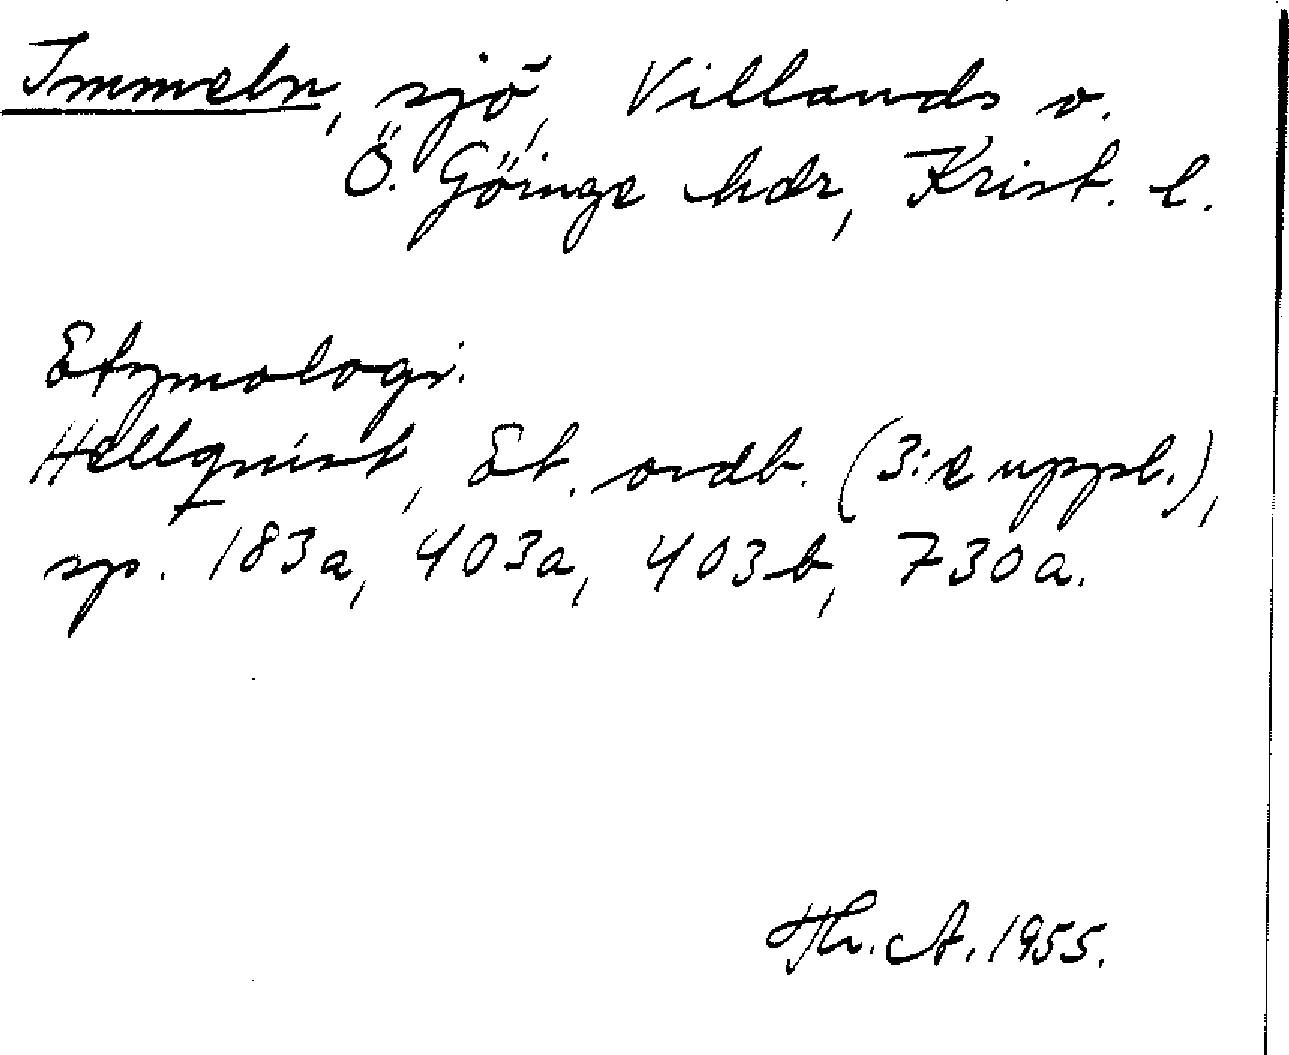 Immeln, sjö, Villands o.
Ö. Göinge hdr, Krist. l.
Etymologi.
Hellquist, Et. ordb. (3:e uppl.),
sp. 183a, 403a, 403b, 730a.
Th. A. 1955.